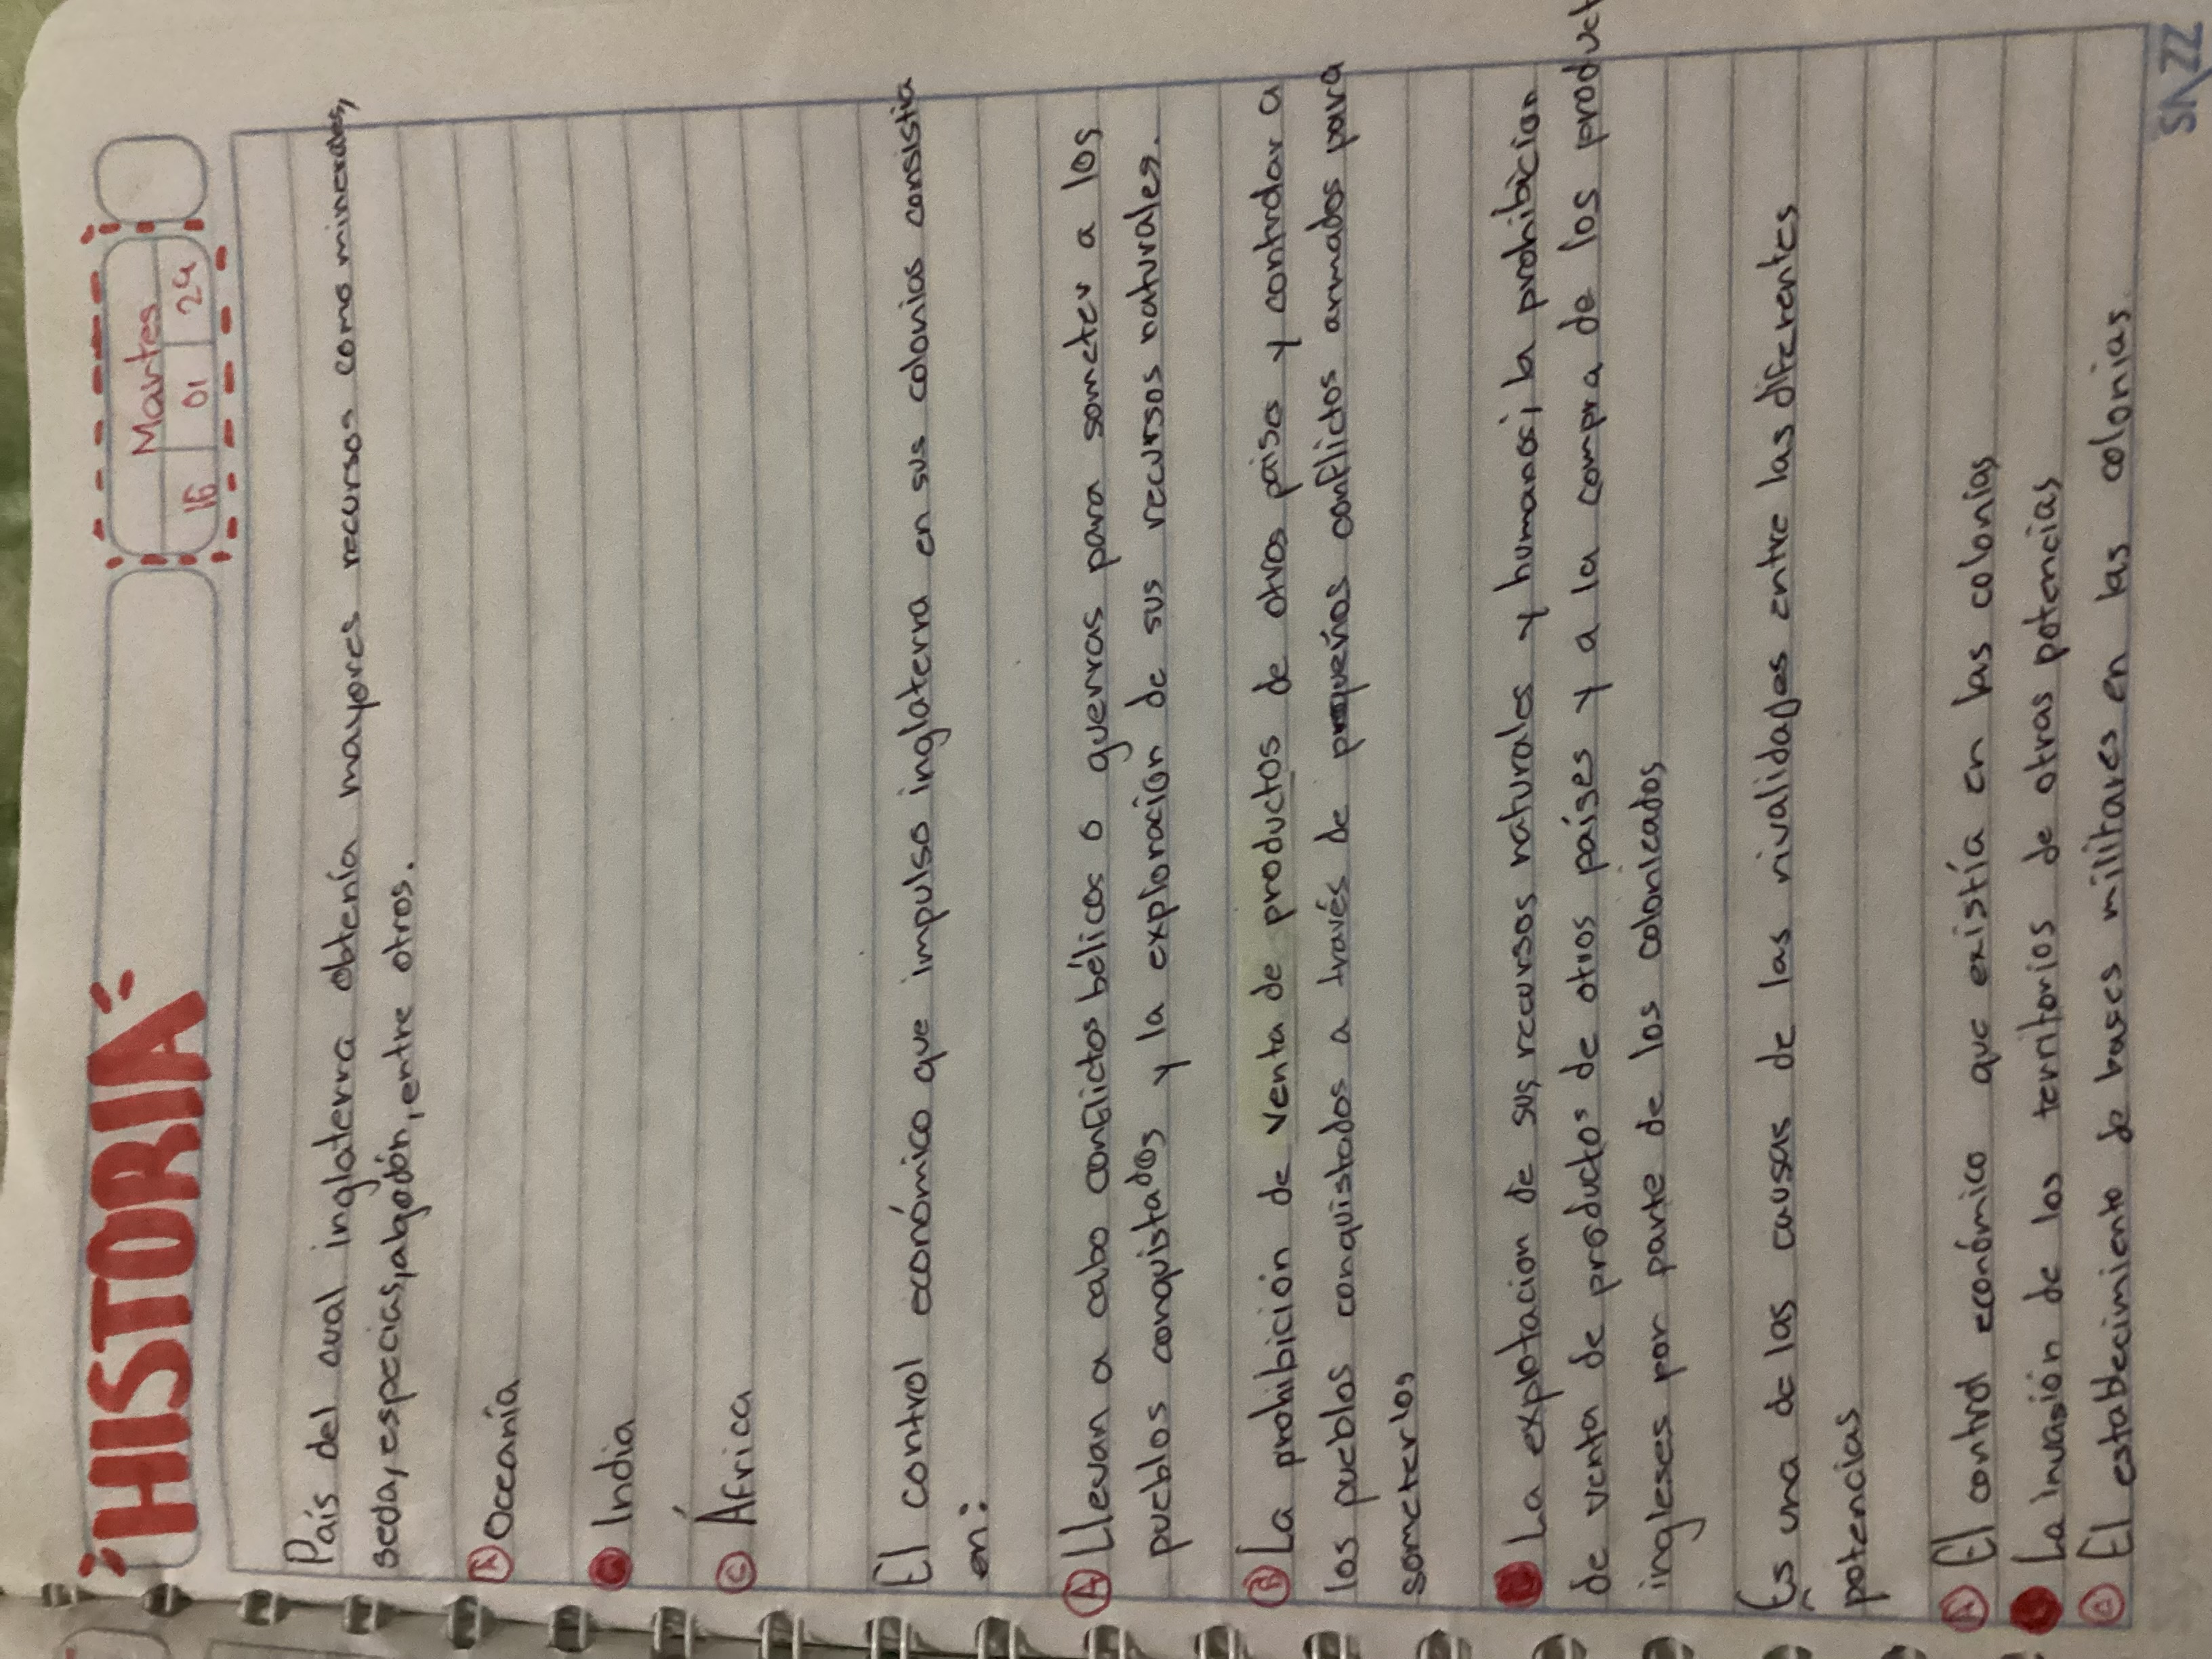 HISTORIA
Martes
16 01 24
País del cual inglaterra obtenía mayores recursos como minerales,
seda, especias, algodón, entre otros.
A Oceanía
India
C África
El control económico que impulso inglaterra en sus colonias consistia
en:
A Llevan a cabo conflictos bélicos o guerras para someter a los
pueblos conquistados y la exploración de sus recursos naturales.
B La prohibición de venta de productos de otros paises y controlar a
los pueblos conquistados a través de pequeños conflictos armados para
someterlos
La explotacion de sus recursos naturales y humanos; la prohibicion
de venta de productos de otros países y a la compra de los product
ingleses por parte de los colonicados
Es una de las causas de las rivalidades entre las diferentes
potencias
A El control económico que existía en las colonias
La invasión de los territorios de otras potencias
C El establecimiento de bases militares en las colonias.